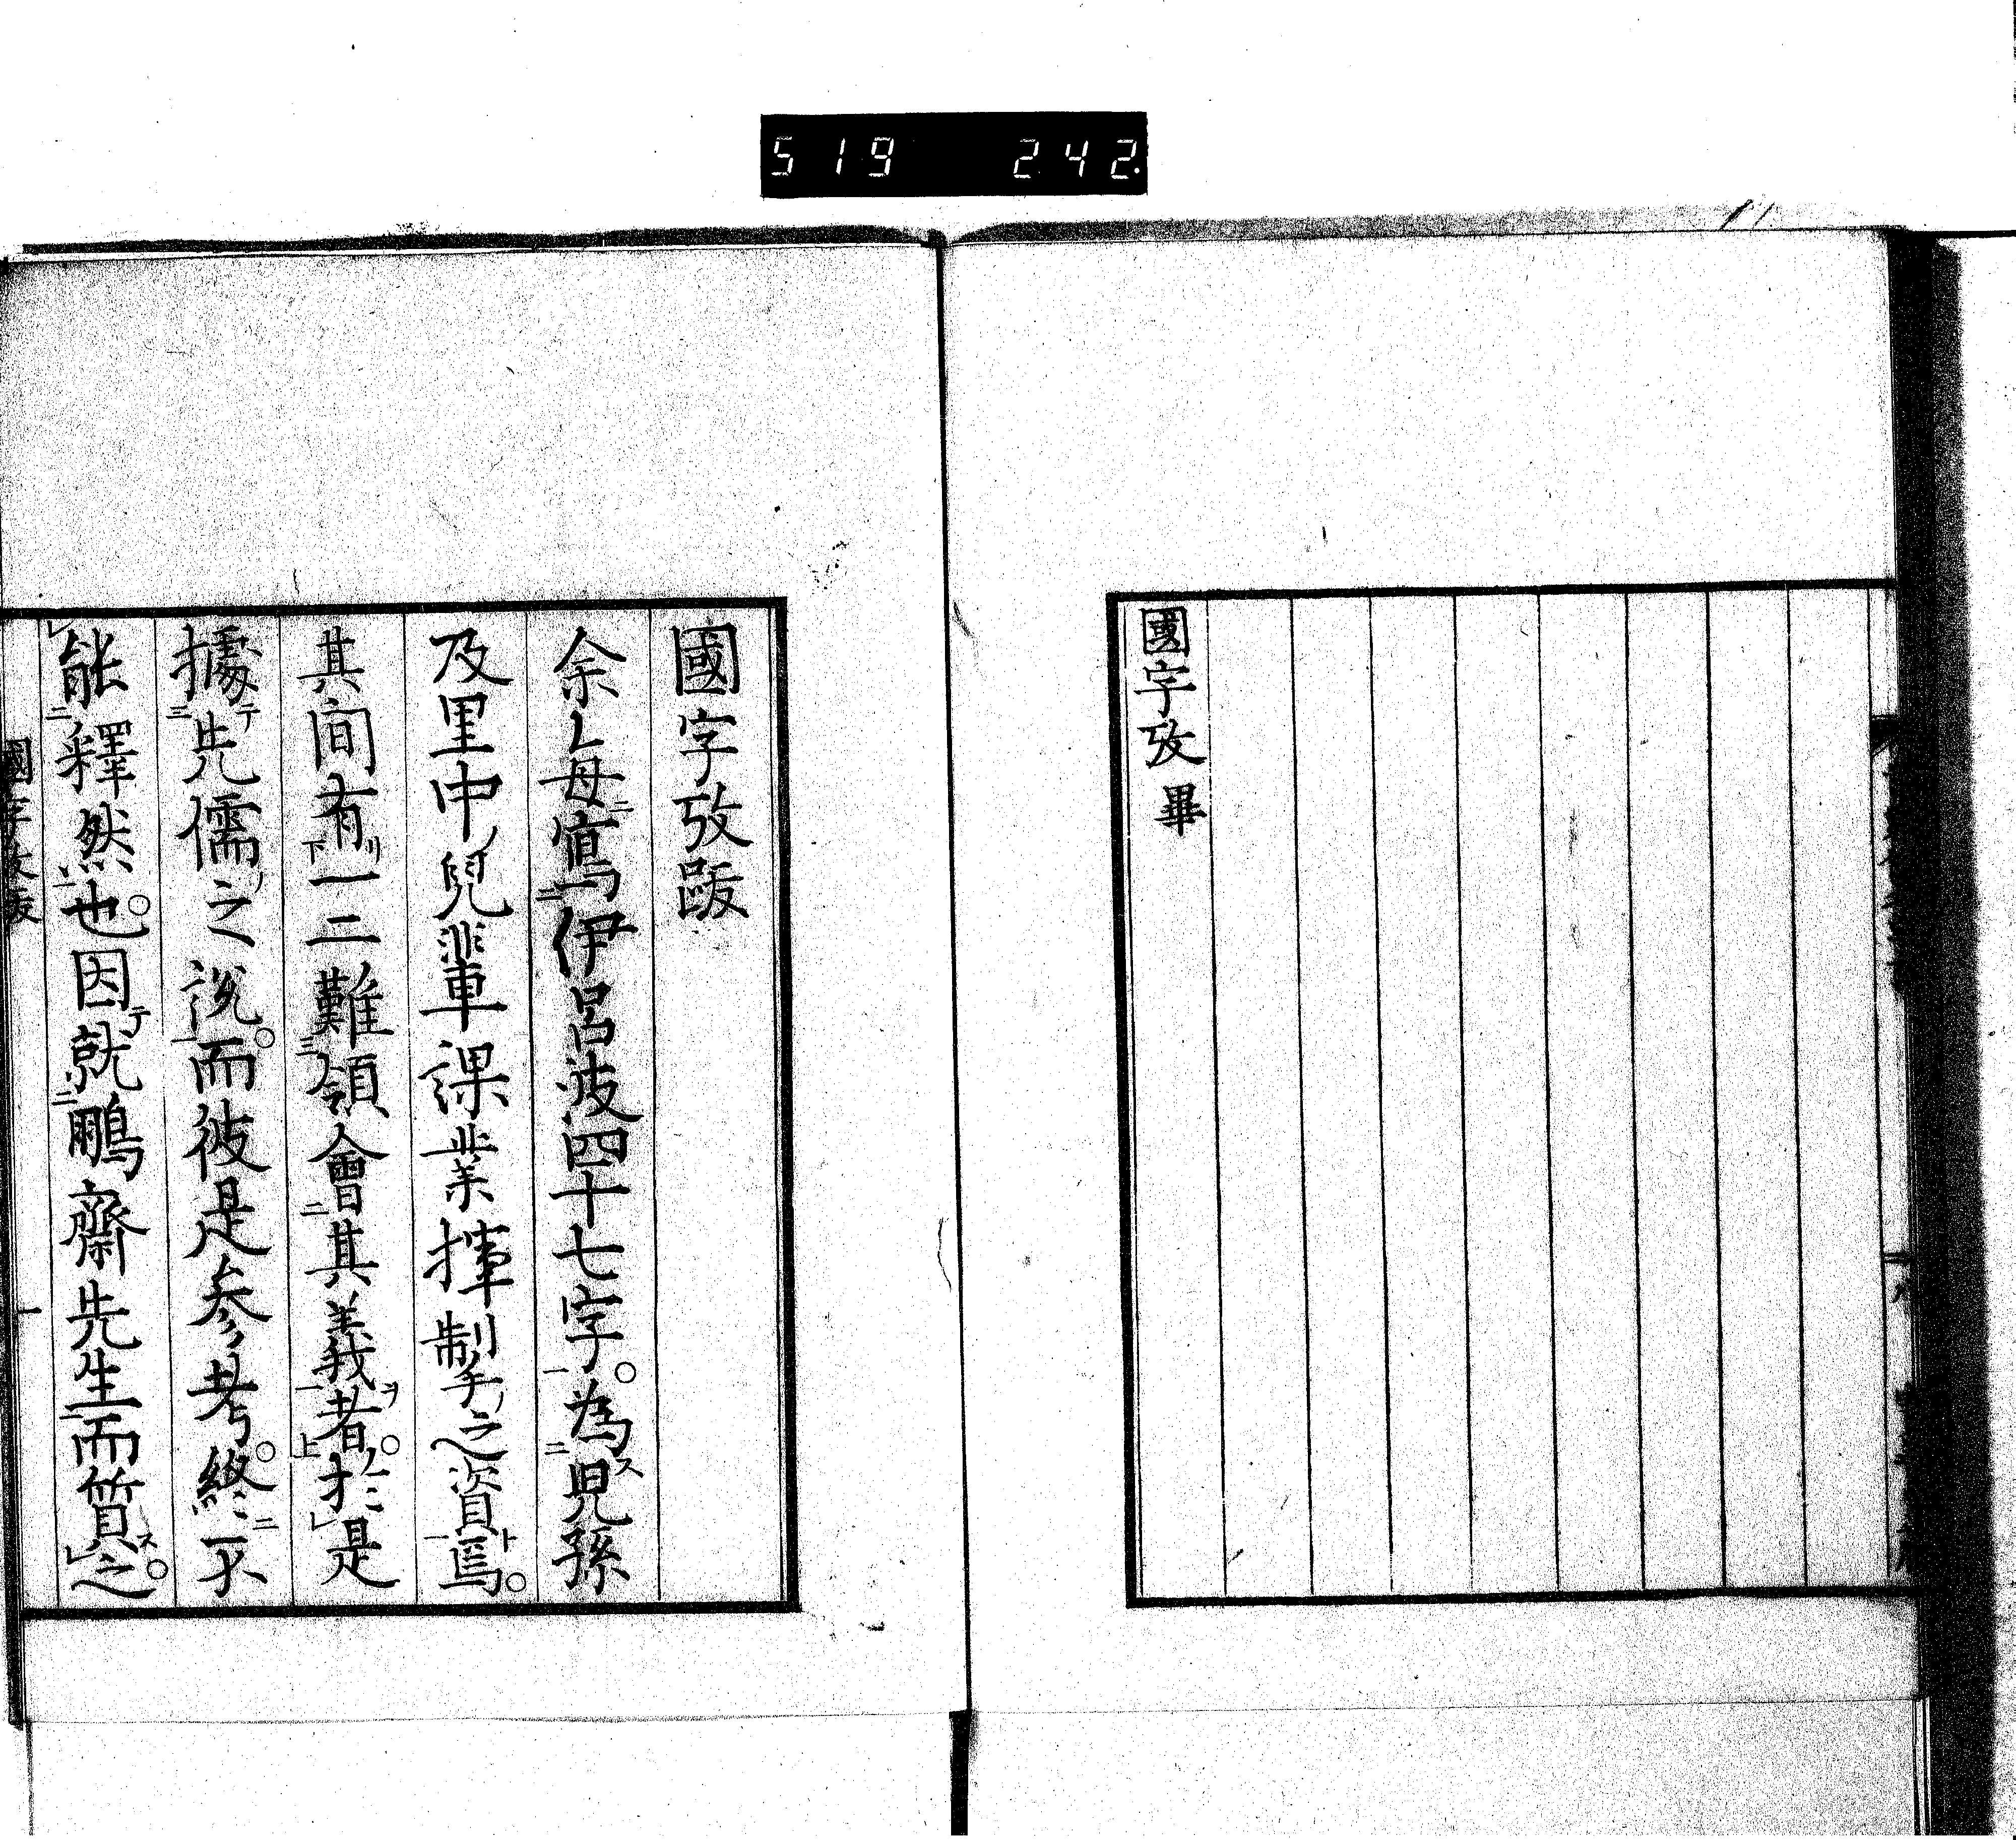 519 242
國字攷 畢
國字攷跋
余毎寫伊呂波四十七字為兒孫
及里中兒輩課業揮制手之資焉
其間有一二難領會其義者於是
據先儒之説而彼是参考終不
能釋然也因就鵬齋先生而質之
國字攷跋 一